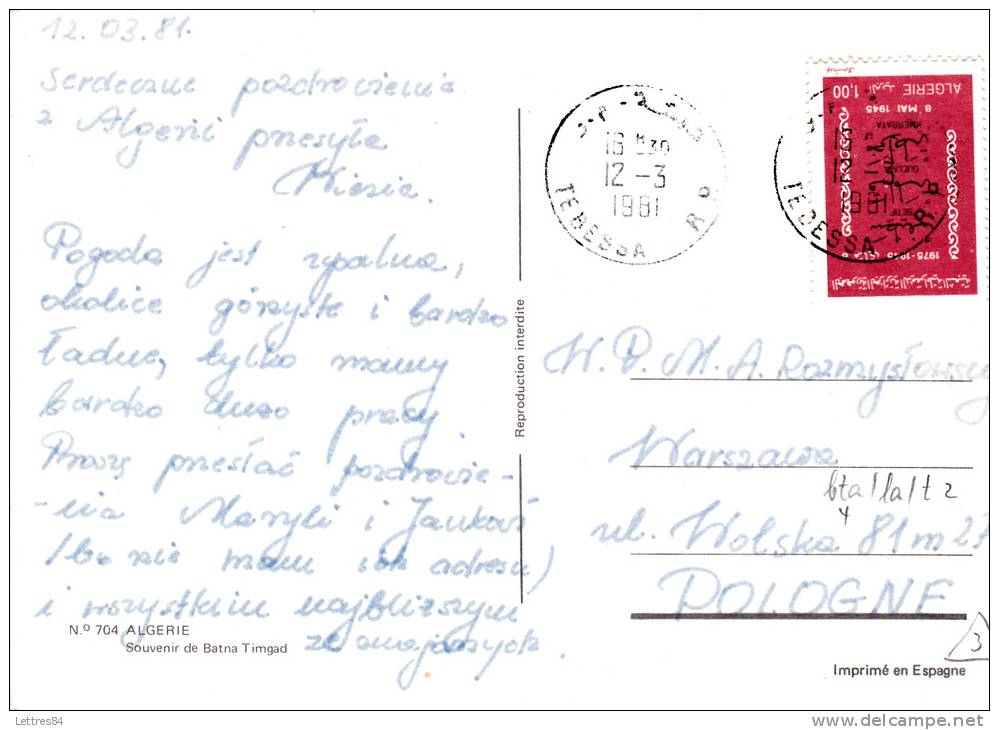 12.03.81.
Serdeczne pozdrowienia
z Algerii przesyła
Misia.
Pogoda jest upalna,
okolice górzyste i bardzo
ładne, tylko mamy
bardzo dużo pracy
Proszę przesłać pozdrowie-
-nia Maryli i Jankowi
/bo nie mam ich adresu/
i wszystkim najbliższym
ze znajomych.
N.º 704 ALGERIE
Souvenir de Batna Timgad
Reproduction interdite
16 H30
12-3
1981
TEBESSA R P
16
12-3
1981
TEBESSA R P
ALGERIE 1,00 الجزائر
8 MAI 1945
KHERRATA
GUELMA
SETIF
1975-1945
W.P.M.A. Rozmysłowscy
Warszawa
ul. Wolska 81 m 27
POLOGNE
bta/la/t 2
3
Imprimé en Espagne
Lettres84
www.delcampe.net